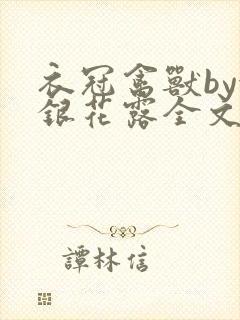 衣冠禽獸by
銀花露全文
譚林信